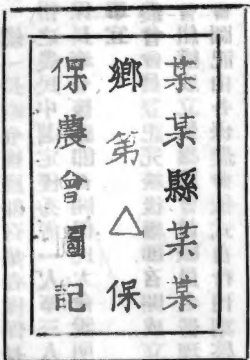 某某縣某某
鄉第△保
保農會圖記